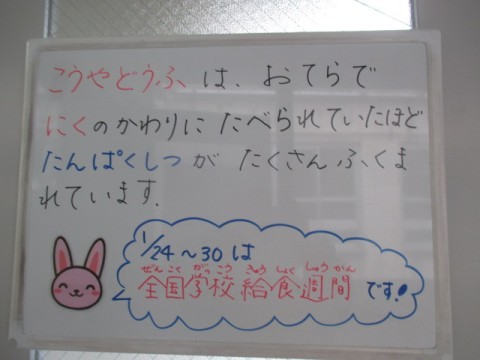 こうやどうふは、おてらで
にくのかわりに たべられていたほど
たんぱくしつが たくさんふくま
れています.
1/24~30は
ぜんこくがっこうきゅうしょくしゅうかん
全国学校給食週間です!